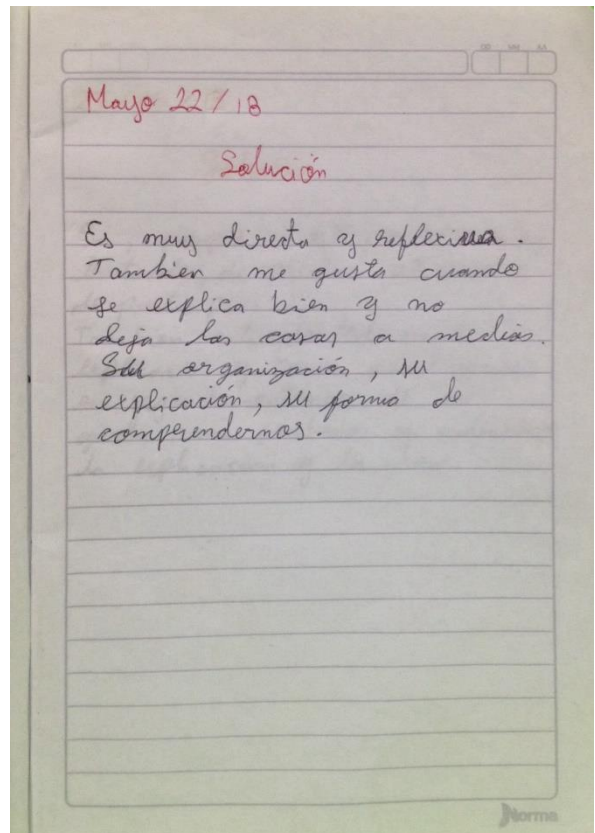 DD MM AA
Mayo 22/18
Solución
Es muy directa y reflexiva.
Tambien me gusta cuando
se explica bien y no
deja las cosas a medias.
Su organización, su
explicación, su forma de
comprendernos.
Norma